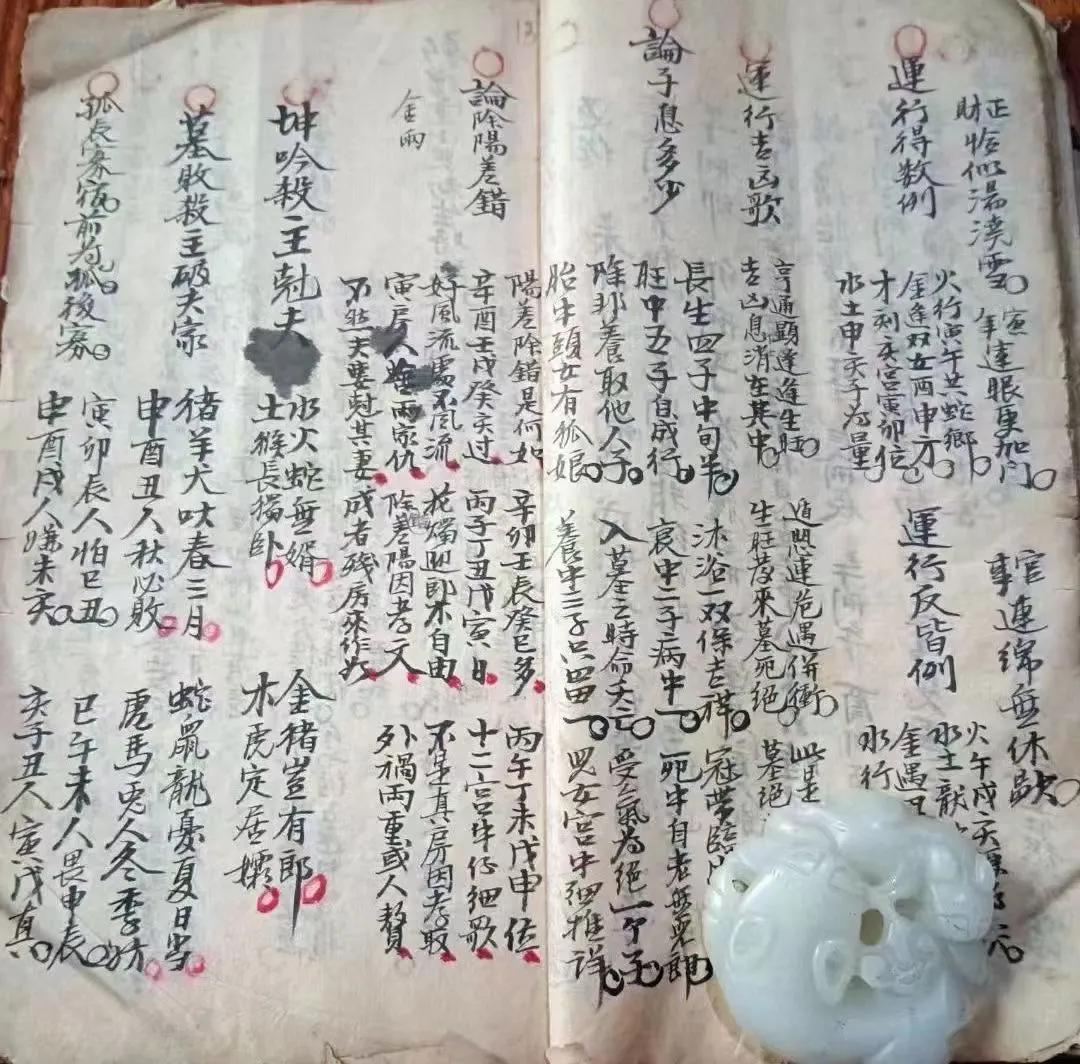 正財恰似湯澆雪
寅連眼更加門
官事連綿無休歇
運行得数例
火行寅午共蛇鄉
金逢双女酉申方
才刻亥宮寅卯位
水土申亥子為量
運行反皆例
火午戌亥
水土
金遇
水行
運行吉凶歌
亨通顯達逢生旺
吉凶息消在其中
遁悶連危遇併衝
生旺發來墓死絕
此是
墓絕
論子息多少
長生四子中旬半
沐浴一双保吉祥
冠帶臨
旺中五子自成行
衰中二子病中一
死中自老無兒郎
除非養取他人子
入墓之時命夭亡
受氣為絕一个子
胎中頭女有孤娘
養中三子只留一
兒女宮中細推詳
論除陽差錯
金兩
陽差除錯是何如
辛卯壬辰癸巳多
丙午丁未戊申位
辛酉壬戌癸亥过
丙子丁丑戊寅日
十二宮中仔細歌
好風流處不風流
花燭迎郎不自由
不是真房因孝取
寅房人 兩家仇
除差陽因孝文
外禍兩重或人贅
不然一夫妻尅其妻
成者殘房來作
坤吟殺主尅夫
水火蛇無婿
金猪豈有郎
土猴長獨卧
木虎定居孀
墓敗殺主破夫家
猪羊犬吠春三月
蛇鼠龍憂夏日
申酉丑人秋必敗
虎馬兔人冬季
孤辰寡宿前为孤後寡
寅卯辰人怕巳丑
巳午未人畏申辰
申酉戌人嫌未亥
亥子丑人寅戌真